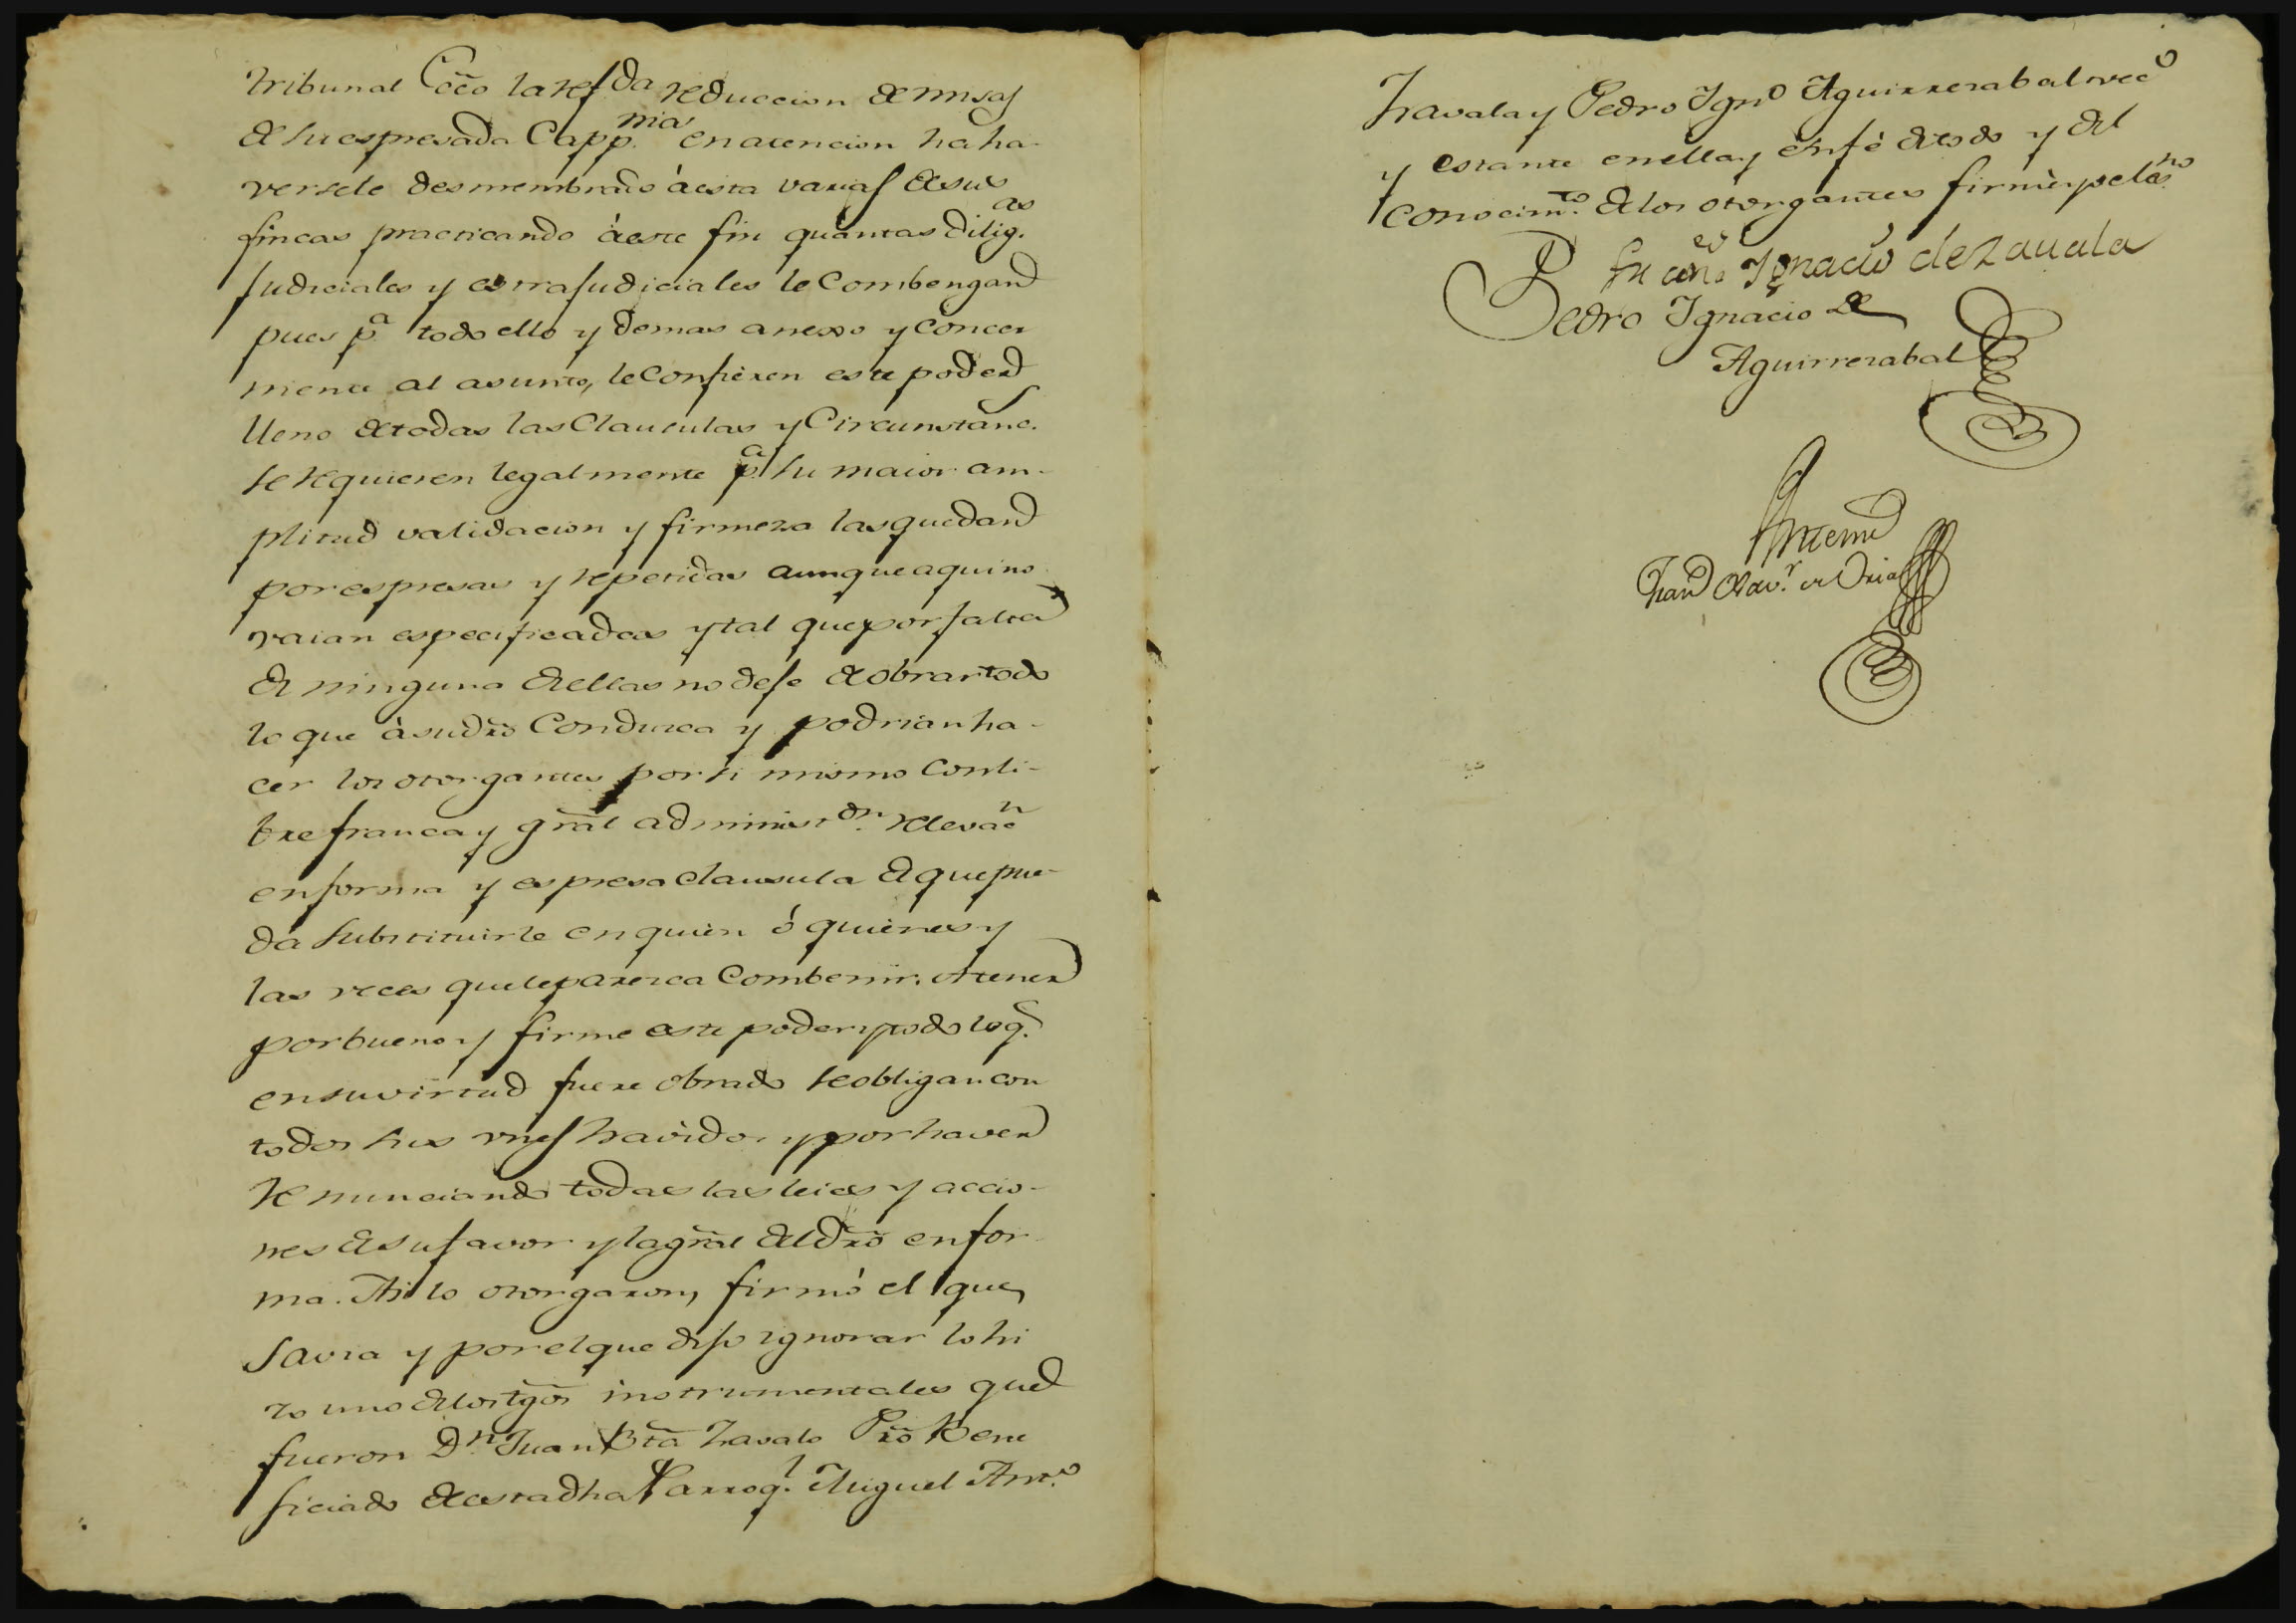 tribunal Ccõ la refda reduccion de misas
de su espresada Capp.nia en atencion ha ha-
versele desmembrado á esta varias de sus
fincas practicando á este fin quantas dilig.as
Judiciales y estrajudiciales le Combengan
pues p.a todo ello y demas anexso y Concer
niente al asunto, le Confieren este poder
lleno de todas las Clausulas y Circunstanc.s
se requieren legalmente p.a su maior am-
plitud validacion y firmeza las quedan
por espresas y repetidas aunque aqui no
vaian especificadas y tal que por falta
de ninguna de ellas no deje de obrar todo
lo que à su dr̃o Conduzca y podrian ha-
cer los otorgantes por si mismo Con li-
bre franca y gr̃al administ.on relevac̃n
en forma y espresa clausula de que pue-
da substituirle en quien ó quienes y
las veces que le parezca Combenir. A tener
por bueno y firme este poder y todo lo q.e
en su virtud fuere obrado se obligan con
todos sus vnes havidos y por haver
renunciando todas las leies y accio-
nes de su favor y la gr̃al del dr̃o en for-
ma. Asi lo otorgaron, firmó el que
savia y por el que dijo ignorar lo hi
zo uno de los tgõs instrumentales que
fueron D.n Juan Btã Zavala Prõ Bene
ficiado de esta dha Parroq.l Miguel Ant.o
Zavala y Pedro Ign.o Aguirrezabal vec.o
y estante en ella y en fé de todo y del
conocim.to de los otorgantes firmè yo el es.no
Fran.co Ignacio de Zauala
Pedro Ignacio de
Aguirrezabal
Antemi
Fran Xav.r de Oria